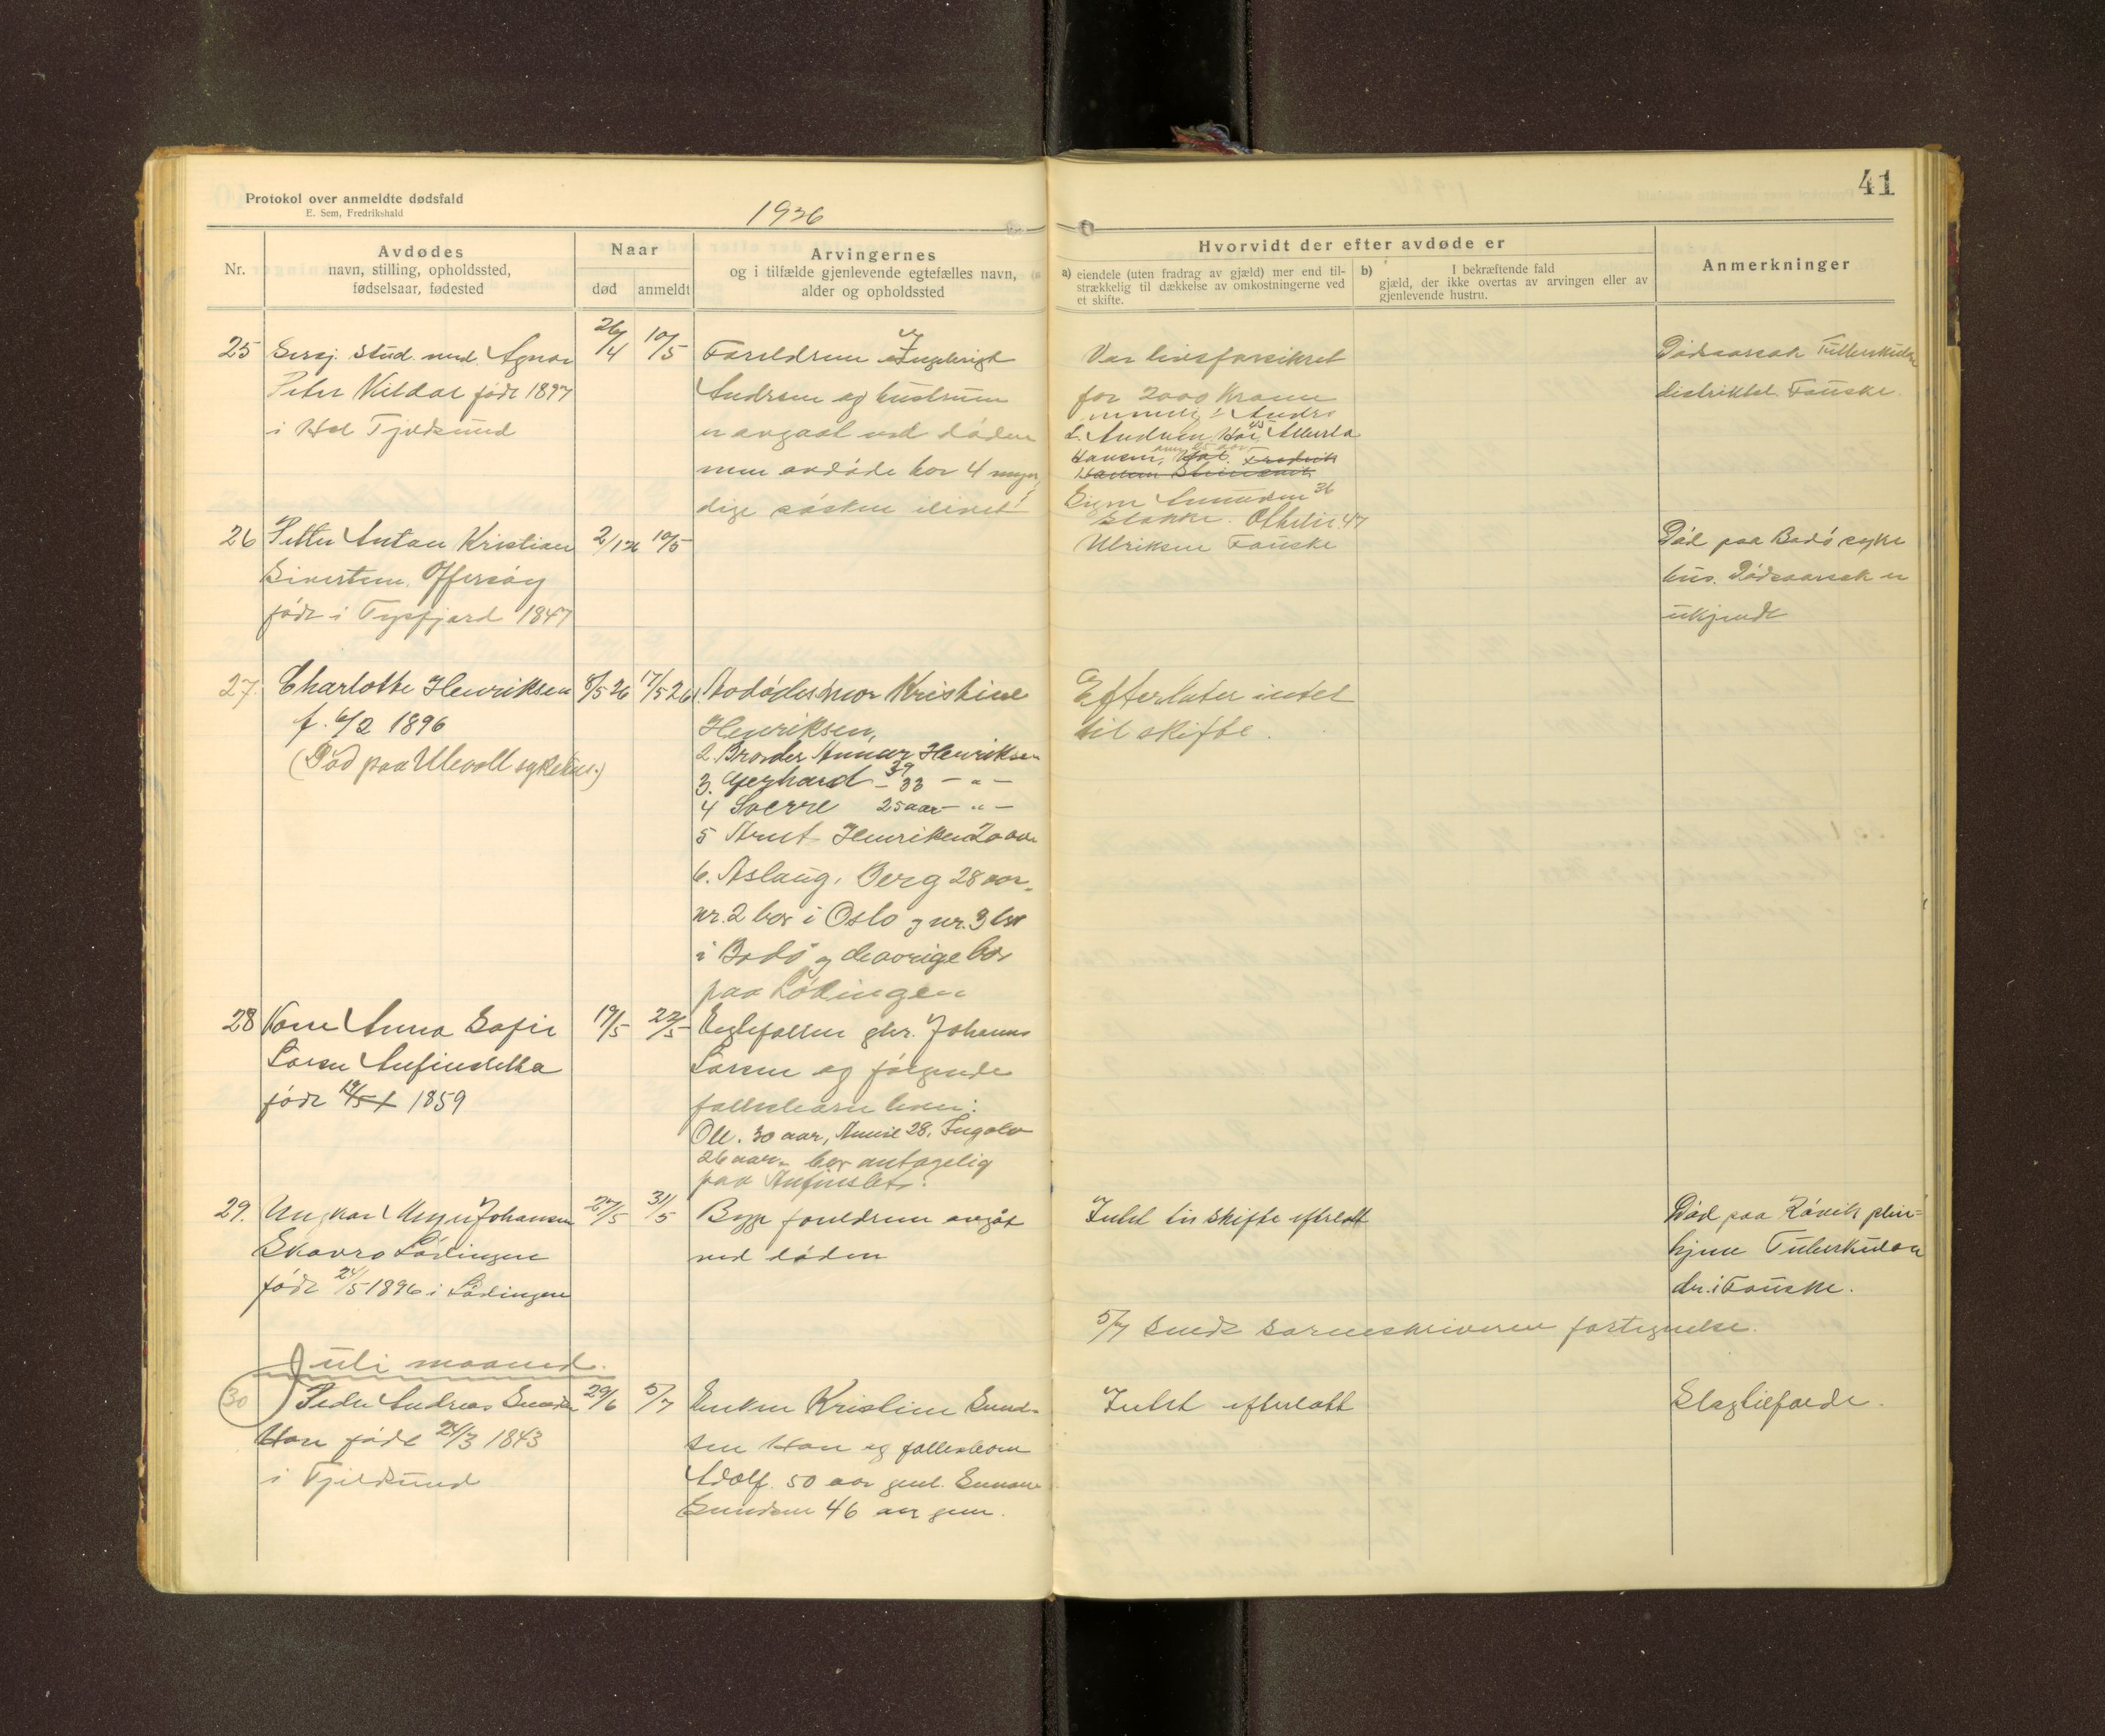 41
Protokol over anmeldte dødsfald
E. Sem, Fredrikshald
1926
Nr.
Avdødes
navn, stilling, opholdssted,
fødselsaar, fødested
Naar
død
anmeldt
Arvingernes
og i tilfælde gjenlevende egtefælles navn,
alder og opholdssted
Hvorvidt der efter avdøde er
a) eiendele (uten fradrag av gjæld) mer end til-
strækkelig til dækkelse av omkostningerne ved
et skifte.
b) I bekræftende fald
gjæld, der ikke overtas av arvingen eller av
gjenlevende hustru.
Anmerkninger
25 stud. med. Agnar
Peter Vildal født 1897
i Hol Tjeldsund
26/4 10/5
Foreldrene Ingebrigt
Andresen og hustruen
er avgaat ved døden
men avdøde har 4 myn
dige søsken ilivet
Var livsforsikret
for 2000 Kroner
Hansen,
Ulriksen Fauske
Dødsaarsak Tuberkulose
distriktet Fauske.
26 Petter Antan Kristian
Sivertsen. Offersøy
født i Tysfjord 1847
2/1 26 10/5
Død paa Bodø syke
hus. Dødsaarsak er
ukjendt
27 Charlotte Henriksen
f. 6/2 1896
(Død paa Ulevoll sykehus.)
8/5 26 17/5 26
1. Avdødes mor Kristine
Henriksen,
2. Broder Annar Henriksen
39
3. Gerhard - 33 - " -
4 Sverre 25 aar - " -
5 Arnt Henriksen 20 aar
6. Aslaug, Berg 28 aar.
nr. 2 bor i Oslo og nr. 3 bor
i Bodø og de øvrige bor
paa Lødingen
Efterlater intet
til skifte.
28 Kone Anna Sofie
Larsen Anfindsletta
født 19/5 1859
19/5 22/5
Ektefellen gbr. Johannes
Larsen og følgende
fellesbarn lever:
Ole. 30 aar, 28, Ingolv
26 aar, bor antagelig
paa Anfinslet.
29. Ungkar Johansen
Skavro Lødingen
født 24/5 1896 i Lødingen
27/5 31/5
Begge foreldrene avgåt
ved døden
Intet til skifte efterlatt
Død paa Røvik plei=
hjem Tuberkulose
dr. i Fauske.
5/7 sendt sorenskriveren fortegnelse.
Juli maaned.
30 Peder Andreas
Han født 24/3 1843
i Tjeldsund
29/6 5/7
Enken Kristine
sen Han og fellesbarn
Adolf. 50 aar
46 aar
Intet efterlatt
Slagtilfælde.